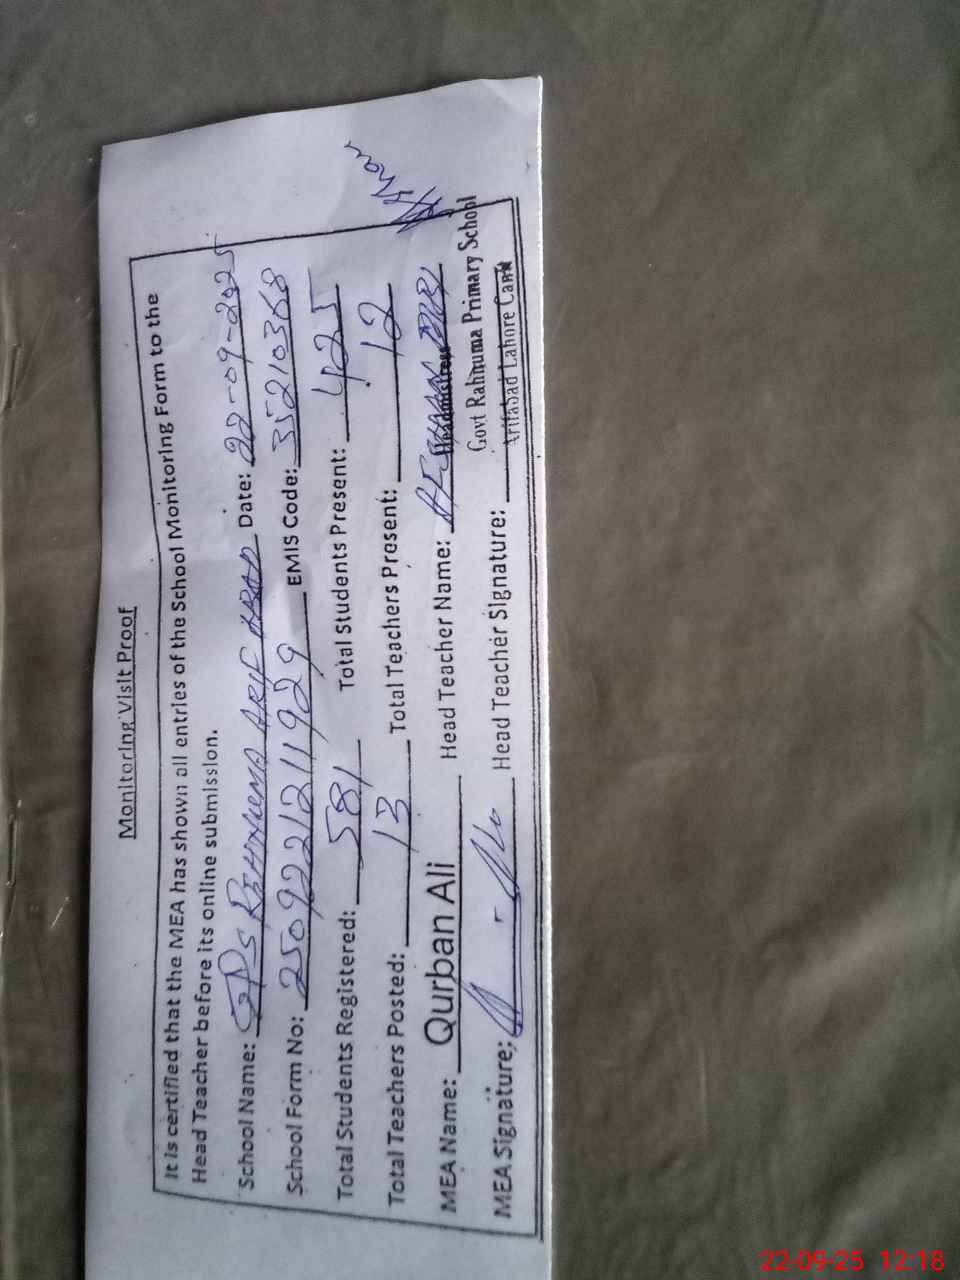 Monitoring Visit Proof
It is certified that the MEA has shown all entries of the School Monitoring Form to the
Head Teacher before its online submission.
School Name: GPS REHNUMA ARIF ABAD Date: 22-09-2025
School Form No: 2509221211929 EMIS Code: 35210368
Total Students Registered: 581 Total Students Present: 425
Total Teachers Posted: 13 Total Teachers Present: 12
MEA Name: Qurban Ali Head Teacher Name: AFSHAN
Headmistress
Govt Rahnuma Primary School
MEA Signature: Head Teacher Signature: Arifabad Lahore Cantt
22-09-25 12:18